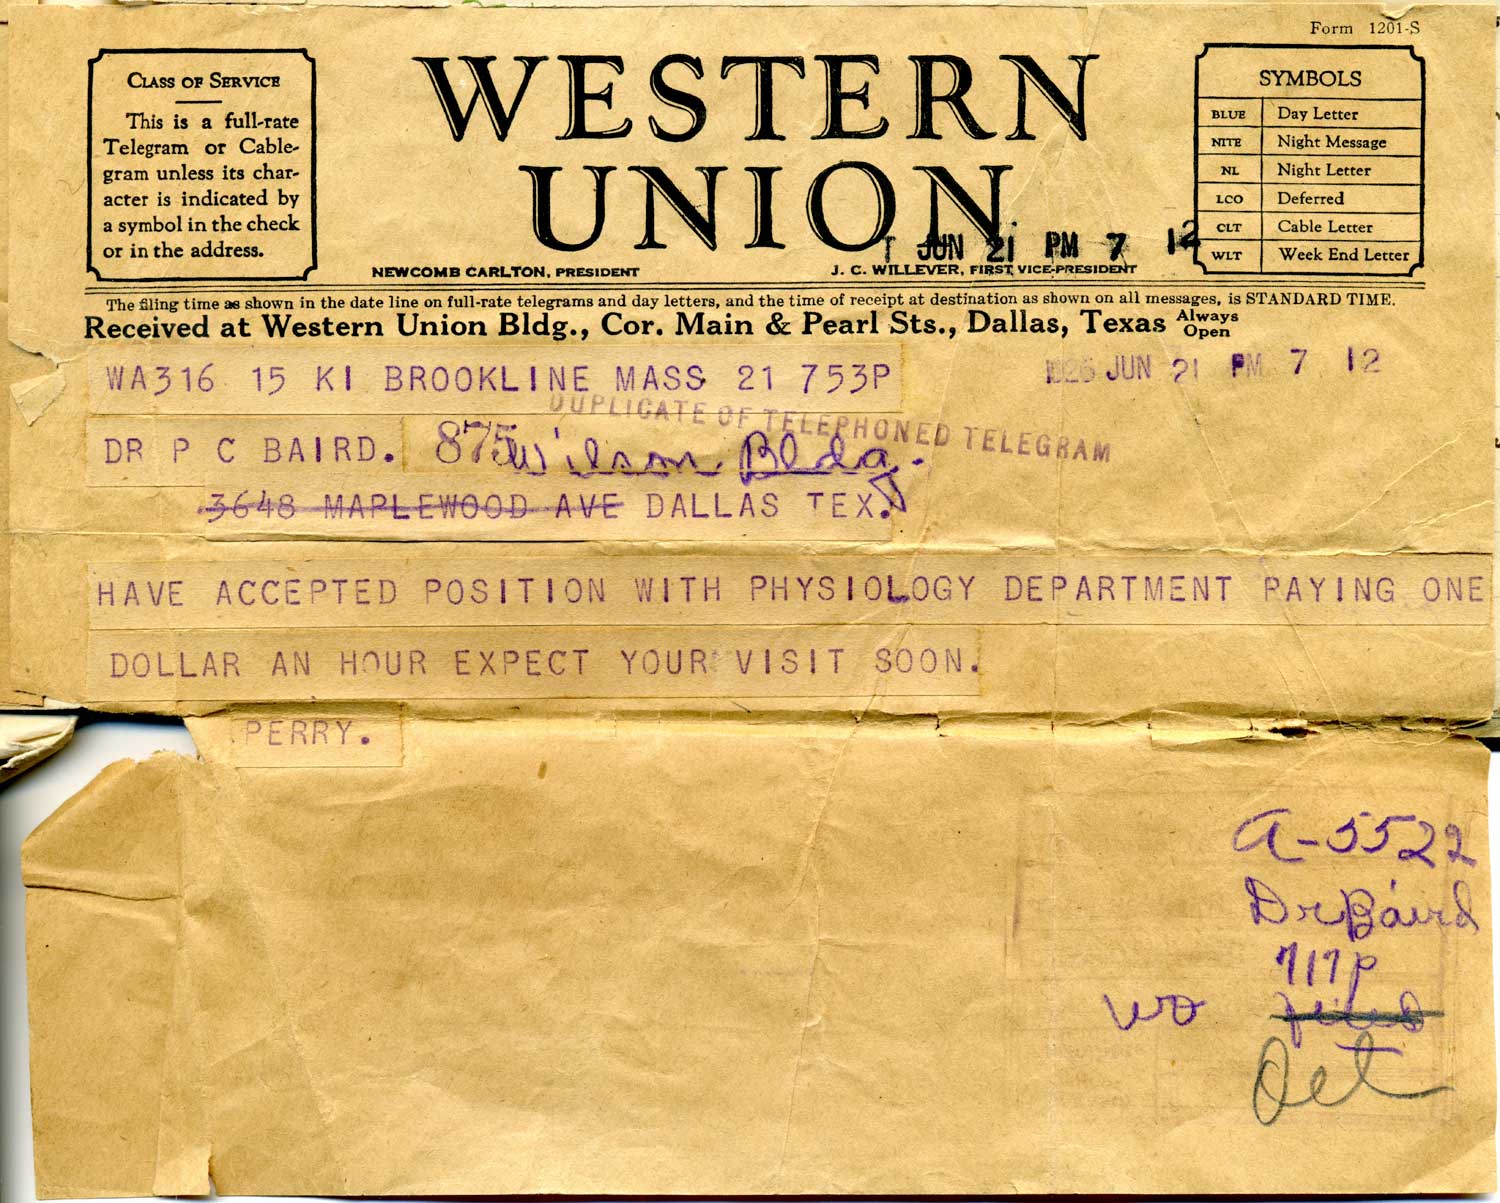 Form 1201-S
CLASS OF SERVICE
This is a full-rate
Telegram or Cable-
gram unless its char-
acter is indicated by
a symbol in the check
or in the address.
WESTERN
UNION
NEWCOMB CARLTON, PRESIDENT
J. C. WILLEVER, FIRST VICE-PRESIDENT
SYMBOLS
BLUE Day Letter
NITE Night Message
NL Night Letter
LCO Deferred
CLT Cable Letter
WLT Week End Letter
JUN 21 PM 7 12
The filing time as shown in the date line on full-rate telegrams and day letters, and the time of receipt at destination as shown on all messages, is STANDARD TIME.
Received at Western Union Bldg., Cor. Main & Pearl Sts., Dallas, Texas Always Open
WA316 15 KI BROOKLINE MASS 21 753P
JUN 21 PM 7 12
DUPLICATE OF TELEPHONED TELEGRAM
DR P C BAIRD. 875 Wilson Bldg.
3648 MAPLEWOOD AVE DALLAS TEX.
HAVE ACCEPTED POSITION WITH PHYSIOLOGY DEPARTMENT PAYING ONE
DOLLAR AN HOUR EXPECT YOUR VISIT SOON.
PERRY.
A-5522
Dr Baird
717p
wo